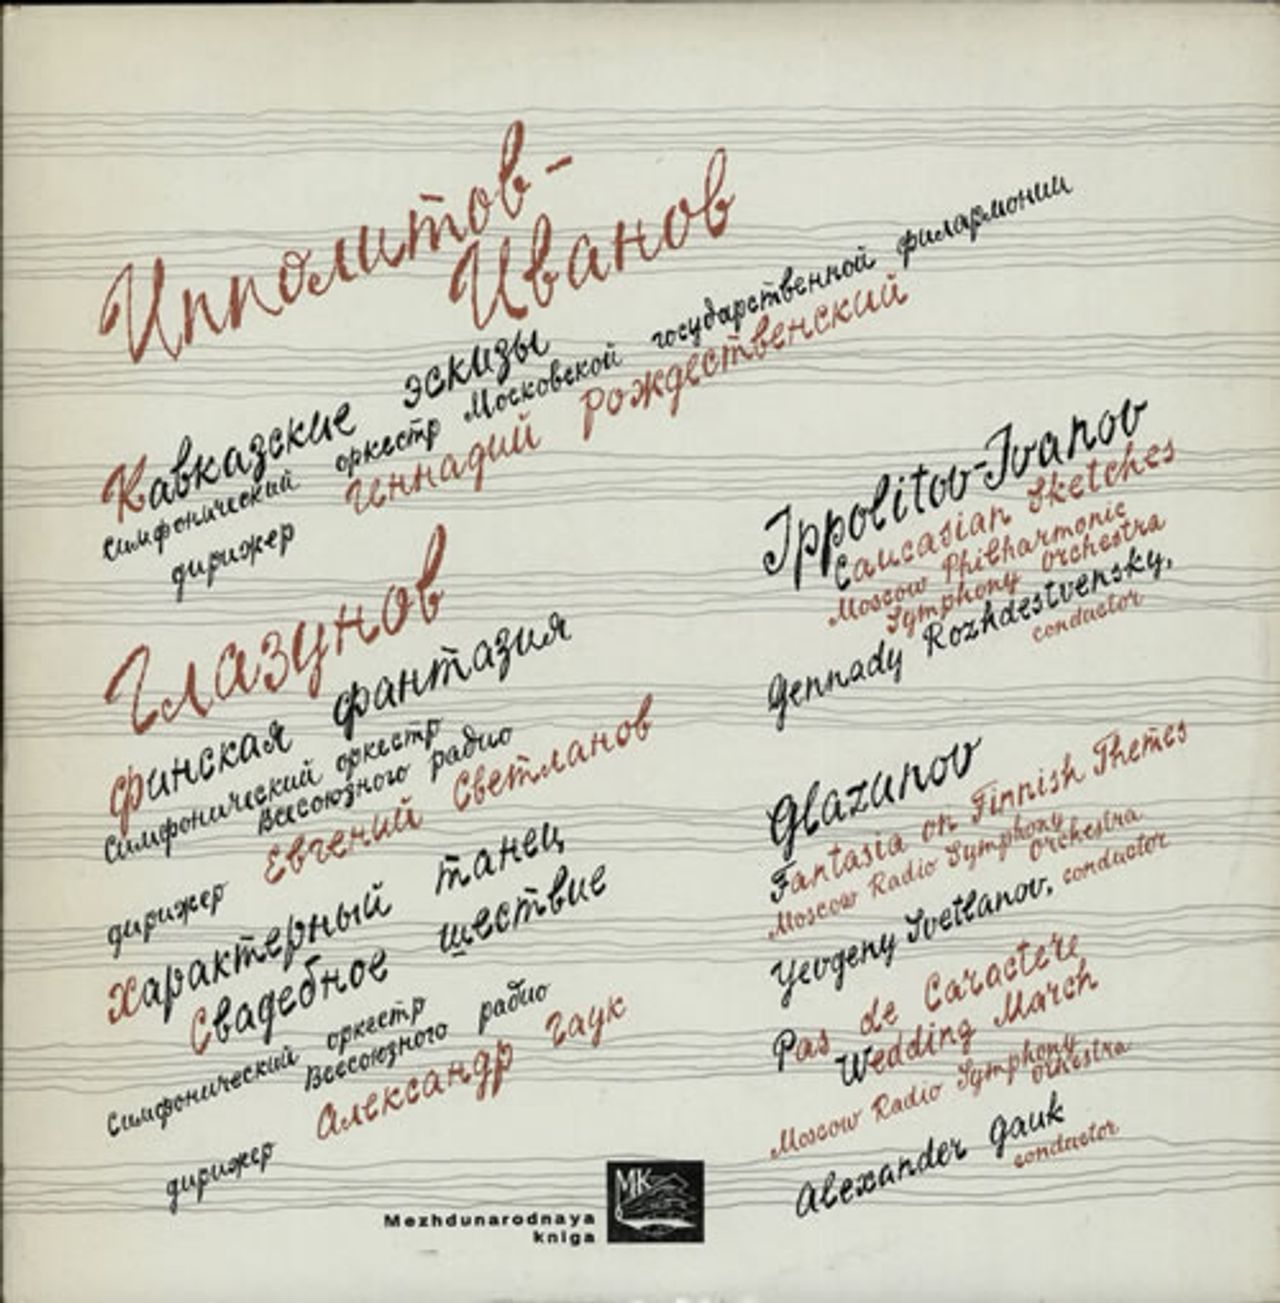 Ипполитов-
Иванов
Кавказские эскизы
симфонический оркестр Московской государственной филармонии
дирижер Геннадий Рождественский
Глазунов
Финская фантазия
Симфонический оркестр
Всесоюзного радио
дирижер Евгений Светланов
Характерный танец
Свадебное шествие
Симфонический оркестр
Всесоюзного радио
дирижер Александр Гаук
Ippolitov-Ivanov
Caucasian Sketches
Moscow Philharmonic
Symphony Orchestra
Gennady Rozhdestvensky,
conductor
Glazunov
Fantasia on Finnish Themes
Moscow Radio Symphony
Orchestra
Yevgeny Svetlanov, conductor
Pas de Caractere
Wedding March
Moscow Radio Symphony
Orhestra
Alexander Gauk
conductor
MK
Mezhdunarodnaya
kniga